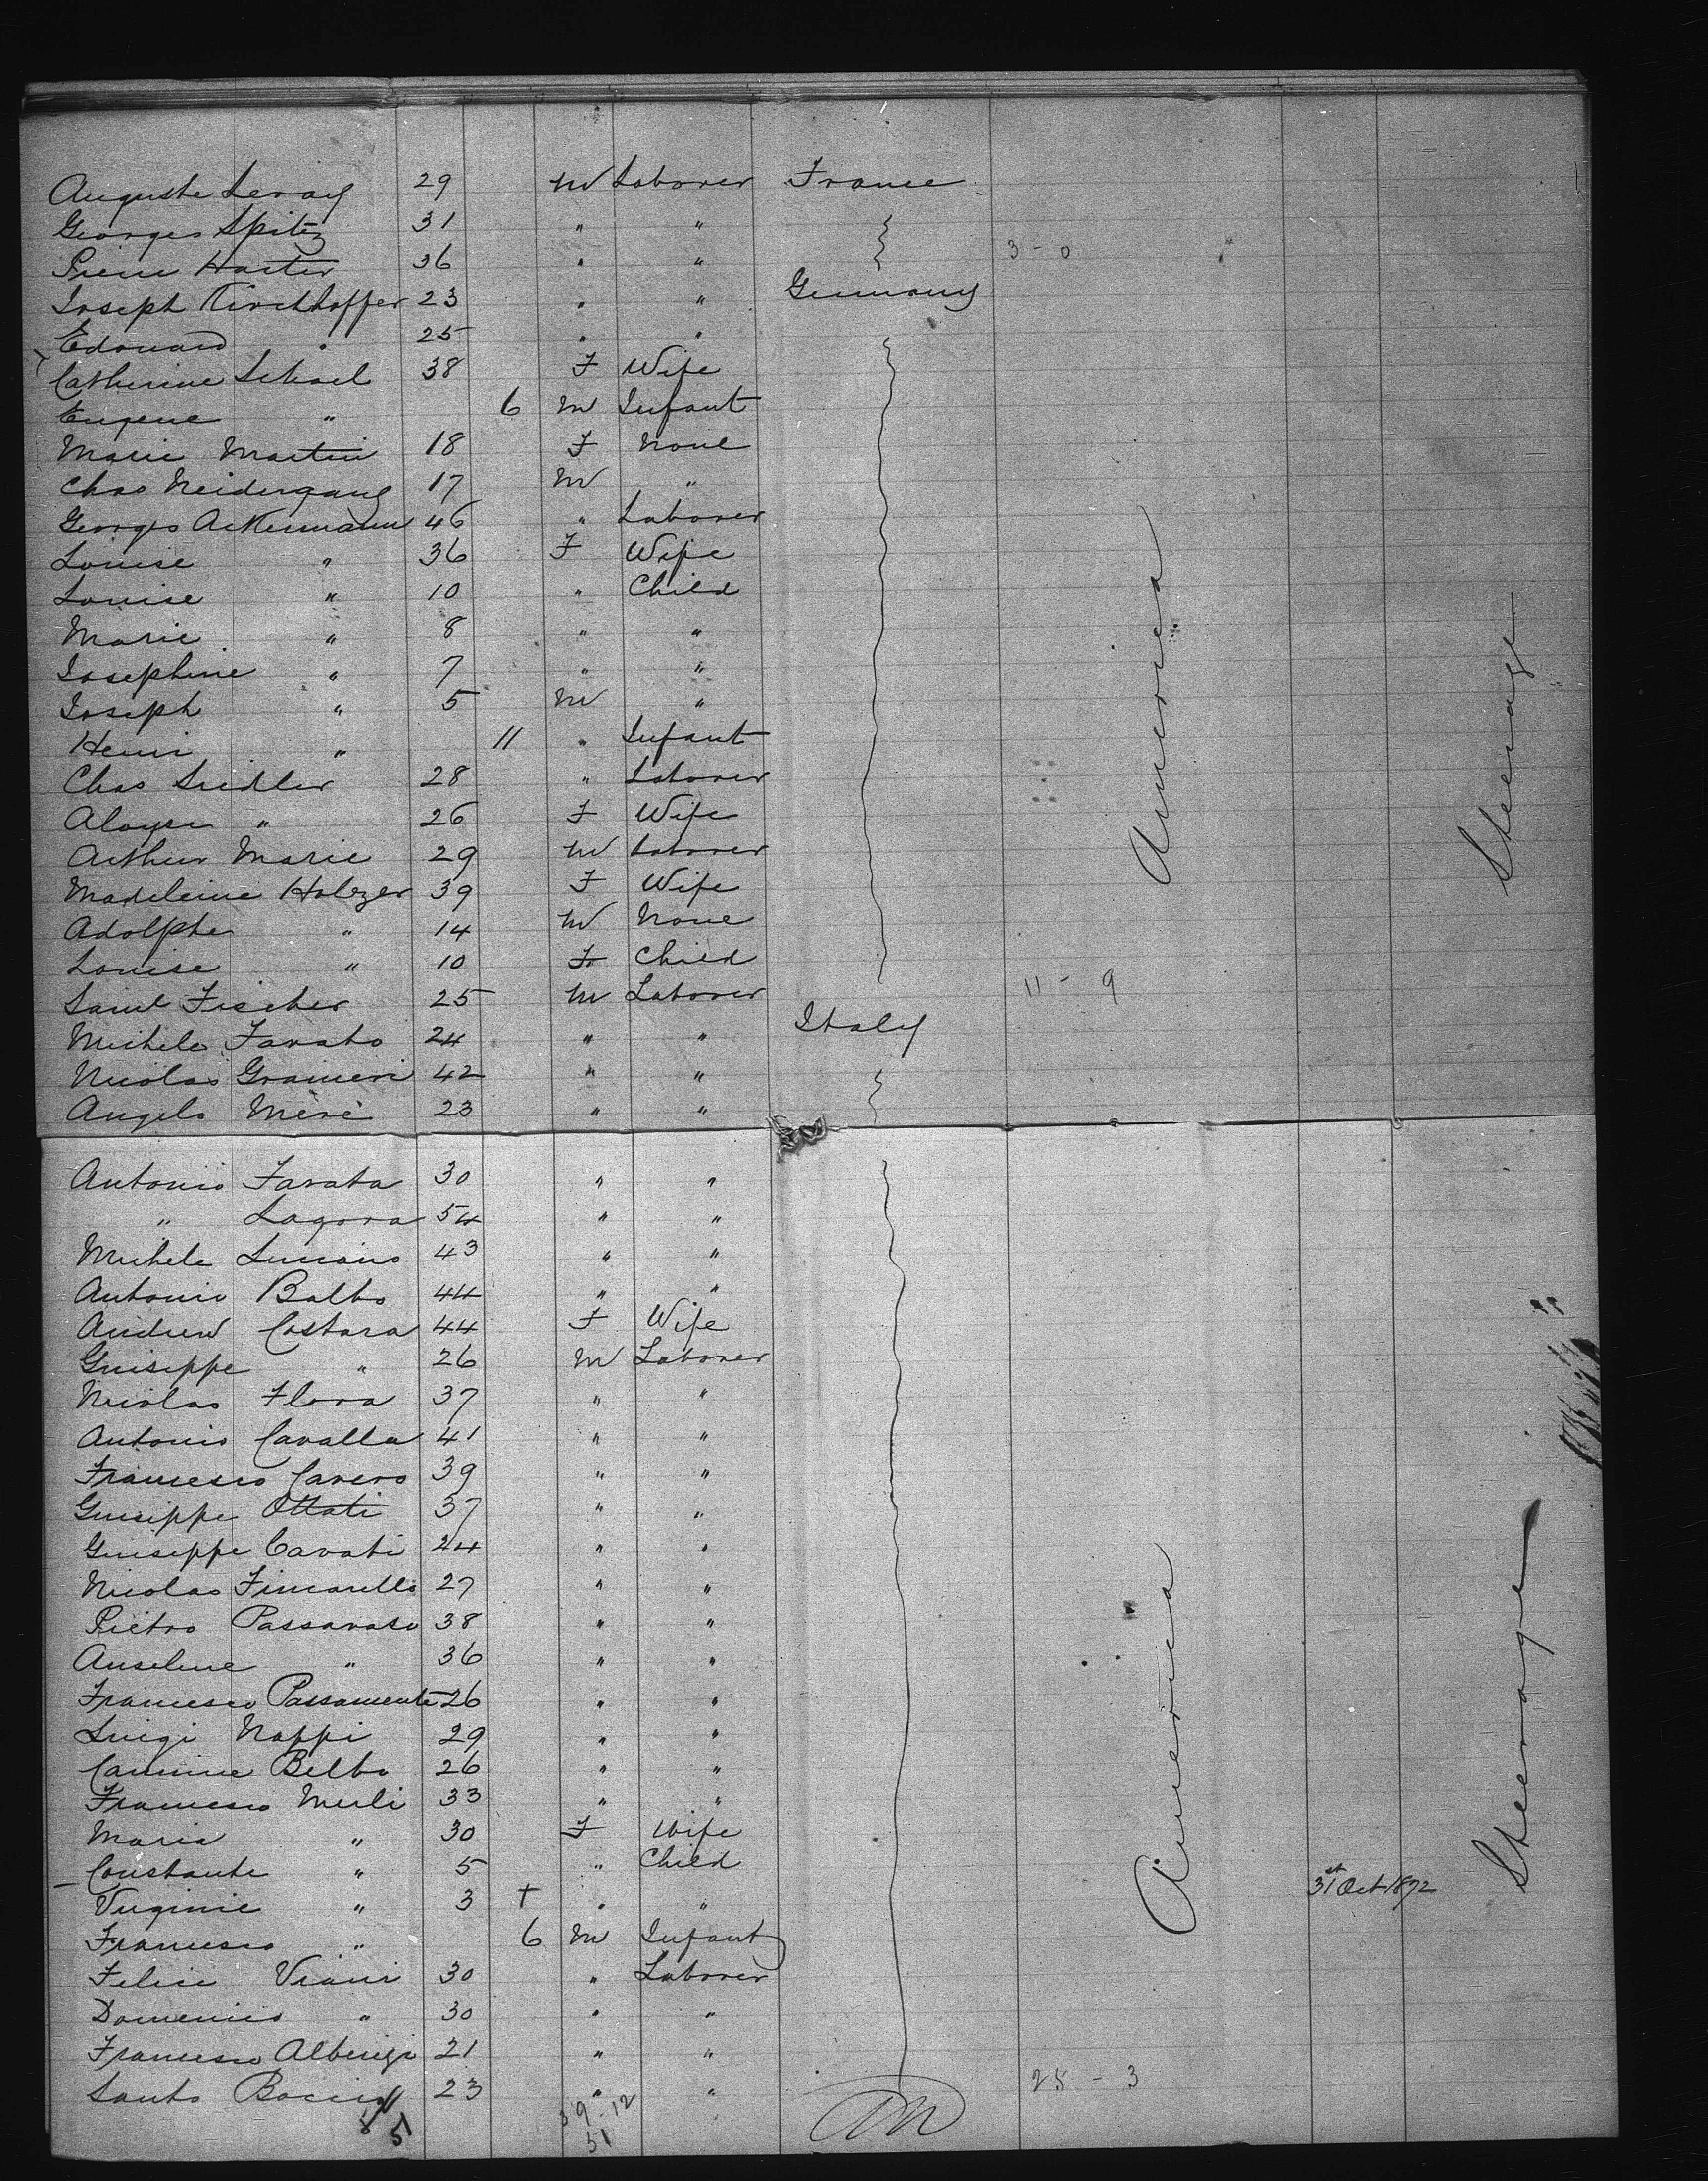 Auguste Leray 29 M Laborer France
Georges Spitz 31 " "
Pierre Harter 36 " " 3 - 0
Joseph Kirchhoffer 23 " " Germany
Edouard " 25 " "
Catherine Schael 38 F Wife
Eugene " 6 M Infant
Marie Martin 18 F None
Chas Neidergang 17 M "
Georges Ackermann 46 " Laborer
Louise " 36 F Wife
Louise " 10 " Child
Marie " 8 " "
Josephine " 7 " "
Joseph " 5 M "
Henri " 11 " Infant
Chas Siedler 28 " Laborer
Aloyse " 26 F Wife
Arthur Marie 29 M Laborer
Madeleine Holzer 39 F Wife
Adolphe " 14 M None
Louise " 10 F Child
Saml Fischer 25 M Laborer 11 - 9
Michele Favato 24 " " Italy
Nicolas Granieri 42 " "
Angelo Meré 23 " "
America
Steerage
Antonio Favata 30 " "
" Lagora 54 " "
Michele Luciano 43 " "
Antonio Balbo 44 " "
Andrew Costara 44 F Wife
Guiseppe " 26 M Laborer
Nicolas Flora 37 " "
Antonio Cavalla 41 " "
Francesco Cavero 39 " "
Guiseppe Ottati 37 " "
Guiseppe Cavati 24 " "
Nicolas Fimarello 27 " "
Pietro Passavaso 38 " "
Anselme " 36 " "
Francesco Passamente 26 " "
Luigi Nappi 29 " "
Carmine Belbo 26 " "
Francesco Merli 33 " "
Maria " 30 F Wife
Constante " 5 " Child
Virginie " 3 + " " 31st Oct 1892
Francesco " 6 M Infant
Felice Viani 30 " Laborer
Domenico " 30 " "
Francesco Alberigi 21 " "
Santo Boccia 23 " " 25 - 3
America
Steerage
39 - 12
51
51